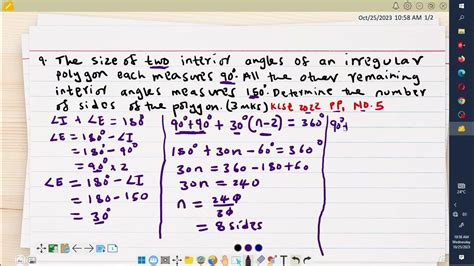 Oct/25/2023 10:58 AM 1/2
9. The size of two interior angles of an irregular
polygon each measures 90°. All the other remaining
interior angles measures 150°. Determine the number
of sides of the polygon. (3 mks) KCSE 2022 PP1 NO. 5
∠I + ∠E = 180°
∠E = 180° - ∠I
= 180° - 90°
= 90° × 2
∠E = 180° - ∠I
= 180 - 150
= 30°
90° + 90° + 30°(n-2) = 360°
180° + 30n - 60° = 360°
30n = 360 - 180 + 60
30n = 240
n = 240/30
= 8 sides
90°+
24°C
10:58 AM
Wednesday
10/25/2023